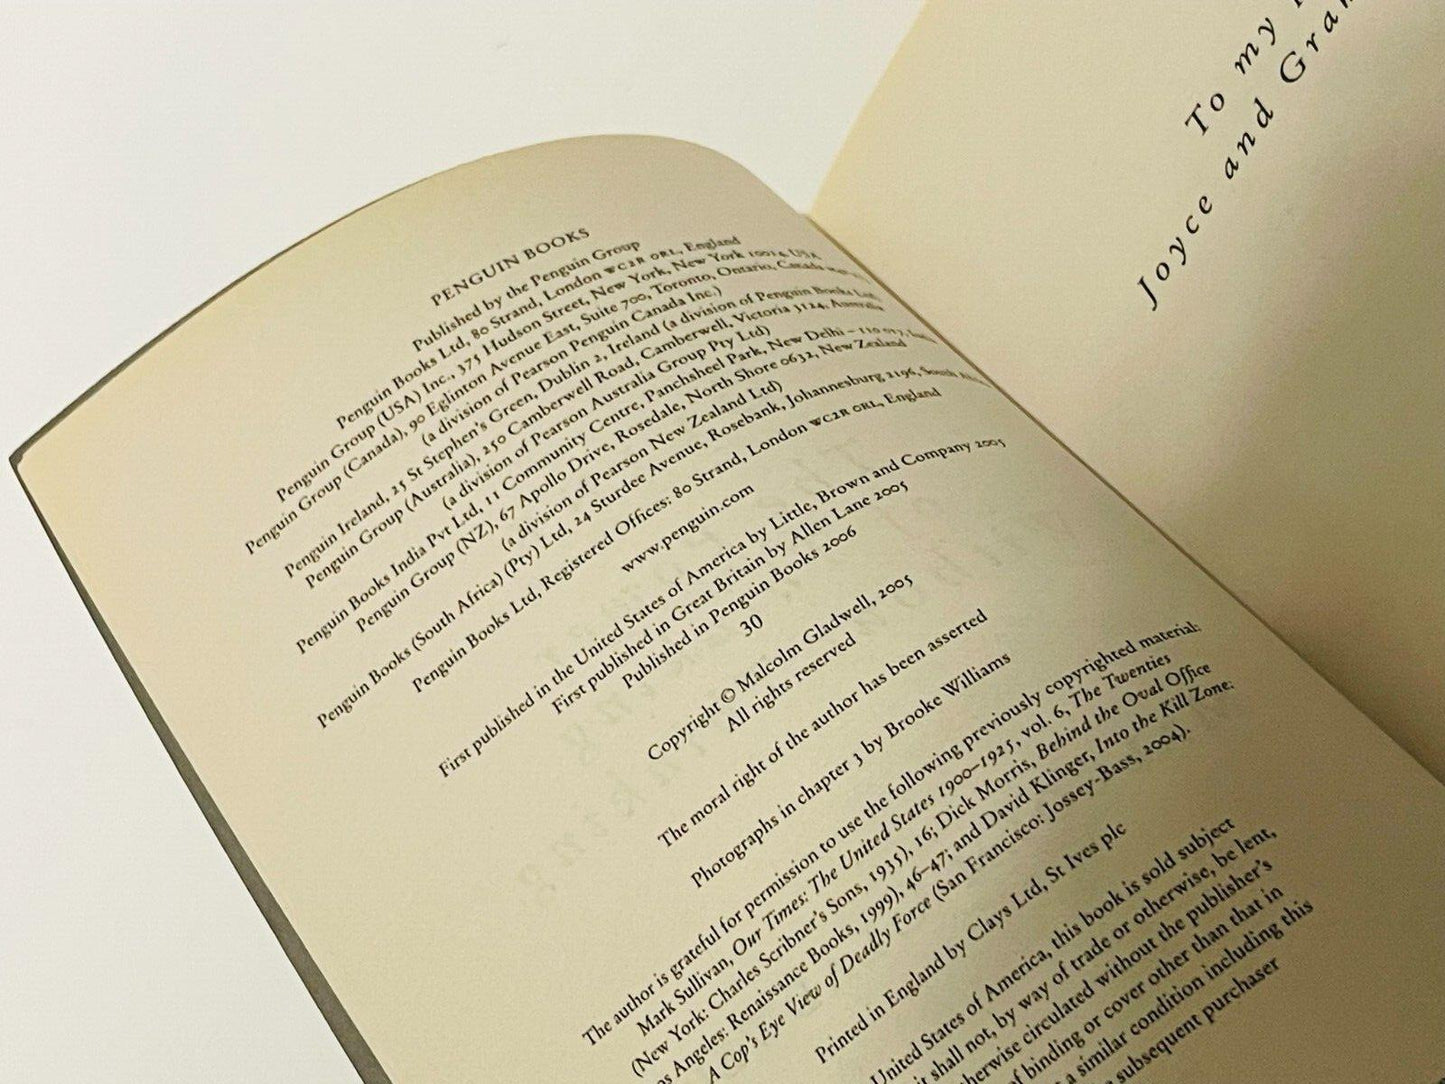 PENGUIN BOOKS
Published by the Penguin Group
Penguin Books Ltd, 80 Strand, London WC2R 0RL, England
Penguin Group (USA) Inc., 375 Hudson Street, New York, New York 10014, USA
Penguin Group (Canada), 90 Eglinton Avenue East, Suite 700, Toronto, Ontario, Canada
(a division of Pearson Penguin Canada Inc.)
Penguin Ireland, 25 St Stephen's Green, Dublin 2, Ireland (a division of Penguin Books Ltd)
Penguin Group (Australia), 250 Camberwell Road, Camberwell, Victoria 3124, Australia
(a division of Pearson Australia Group Pty Ltd)
Penguin Books India Pvt Ltd, 11 Community Centre, Panchsheel Park, New Delhi – 110 017,
Penguin Group (NZ), 67 Apollo Drive, Rosedale, North Shore 0632, New Zealand
(a division of Pearson New Zealand Ltd)
Penguin Books (South Africa) (Pty) Ltd, 24 Sturdee Avenue, Rosebank, Johannesburg 2196, South
Penguin Books Ltd, Registered Offices: 80 Strand, London WC2R 0RL, England
www.penguin.com
First published in the United States of America by Little, Brown and Company 2005
First published in Great Britain by Allen Lane 2005
Published in Penguin Books 2006
30
Copyright © Malcolm Gladwell, 2005
All rights reserved
The moral right of the author has been asserted
Photographs in chapter 3 by Brooke Williams
The author is grateful for permission to use the following previously copyrighted material:
Mark Sullivan, Our Times: The United States 1900–1925, vol. 6, The Twenties
(New York: Charles Scribner's Sons, 1935), 16; Dick Morris, Behind the Oval Office
Angeles: Renaissance Books, 1999), 46–47; and David Klinger, Into the Kill Zone:
A Cop's Eye View of Deadly Force (San Francisco: Jossey-Bass, 2004).
Printed in England by Clays Ltd, St Ives plc
United States of America, this book is sold subject
it shall not, by way of trade or otherwise, be lent,
circulated without the publisher's
of binding or cover other than that in
a similar condition including this
subsequent purchaser
To my
Joyce and